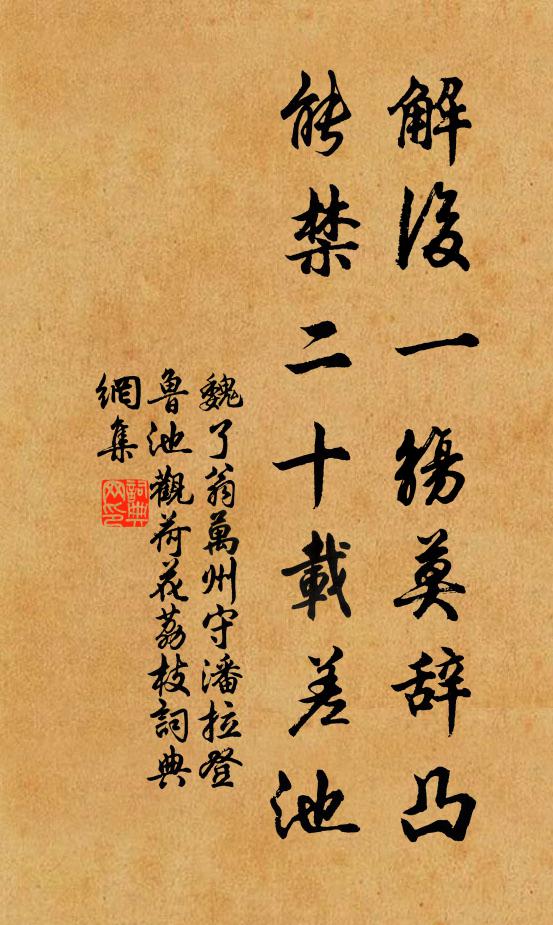 解後一觴莫辞凸
能禁二十載差池
魏了翁萬州守潘拉登
魯池觀荷花荔枝詞典
網集
詞典
网印